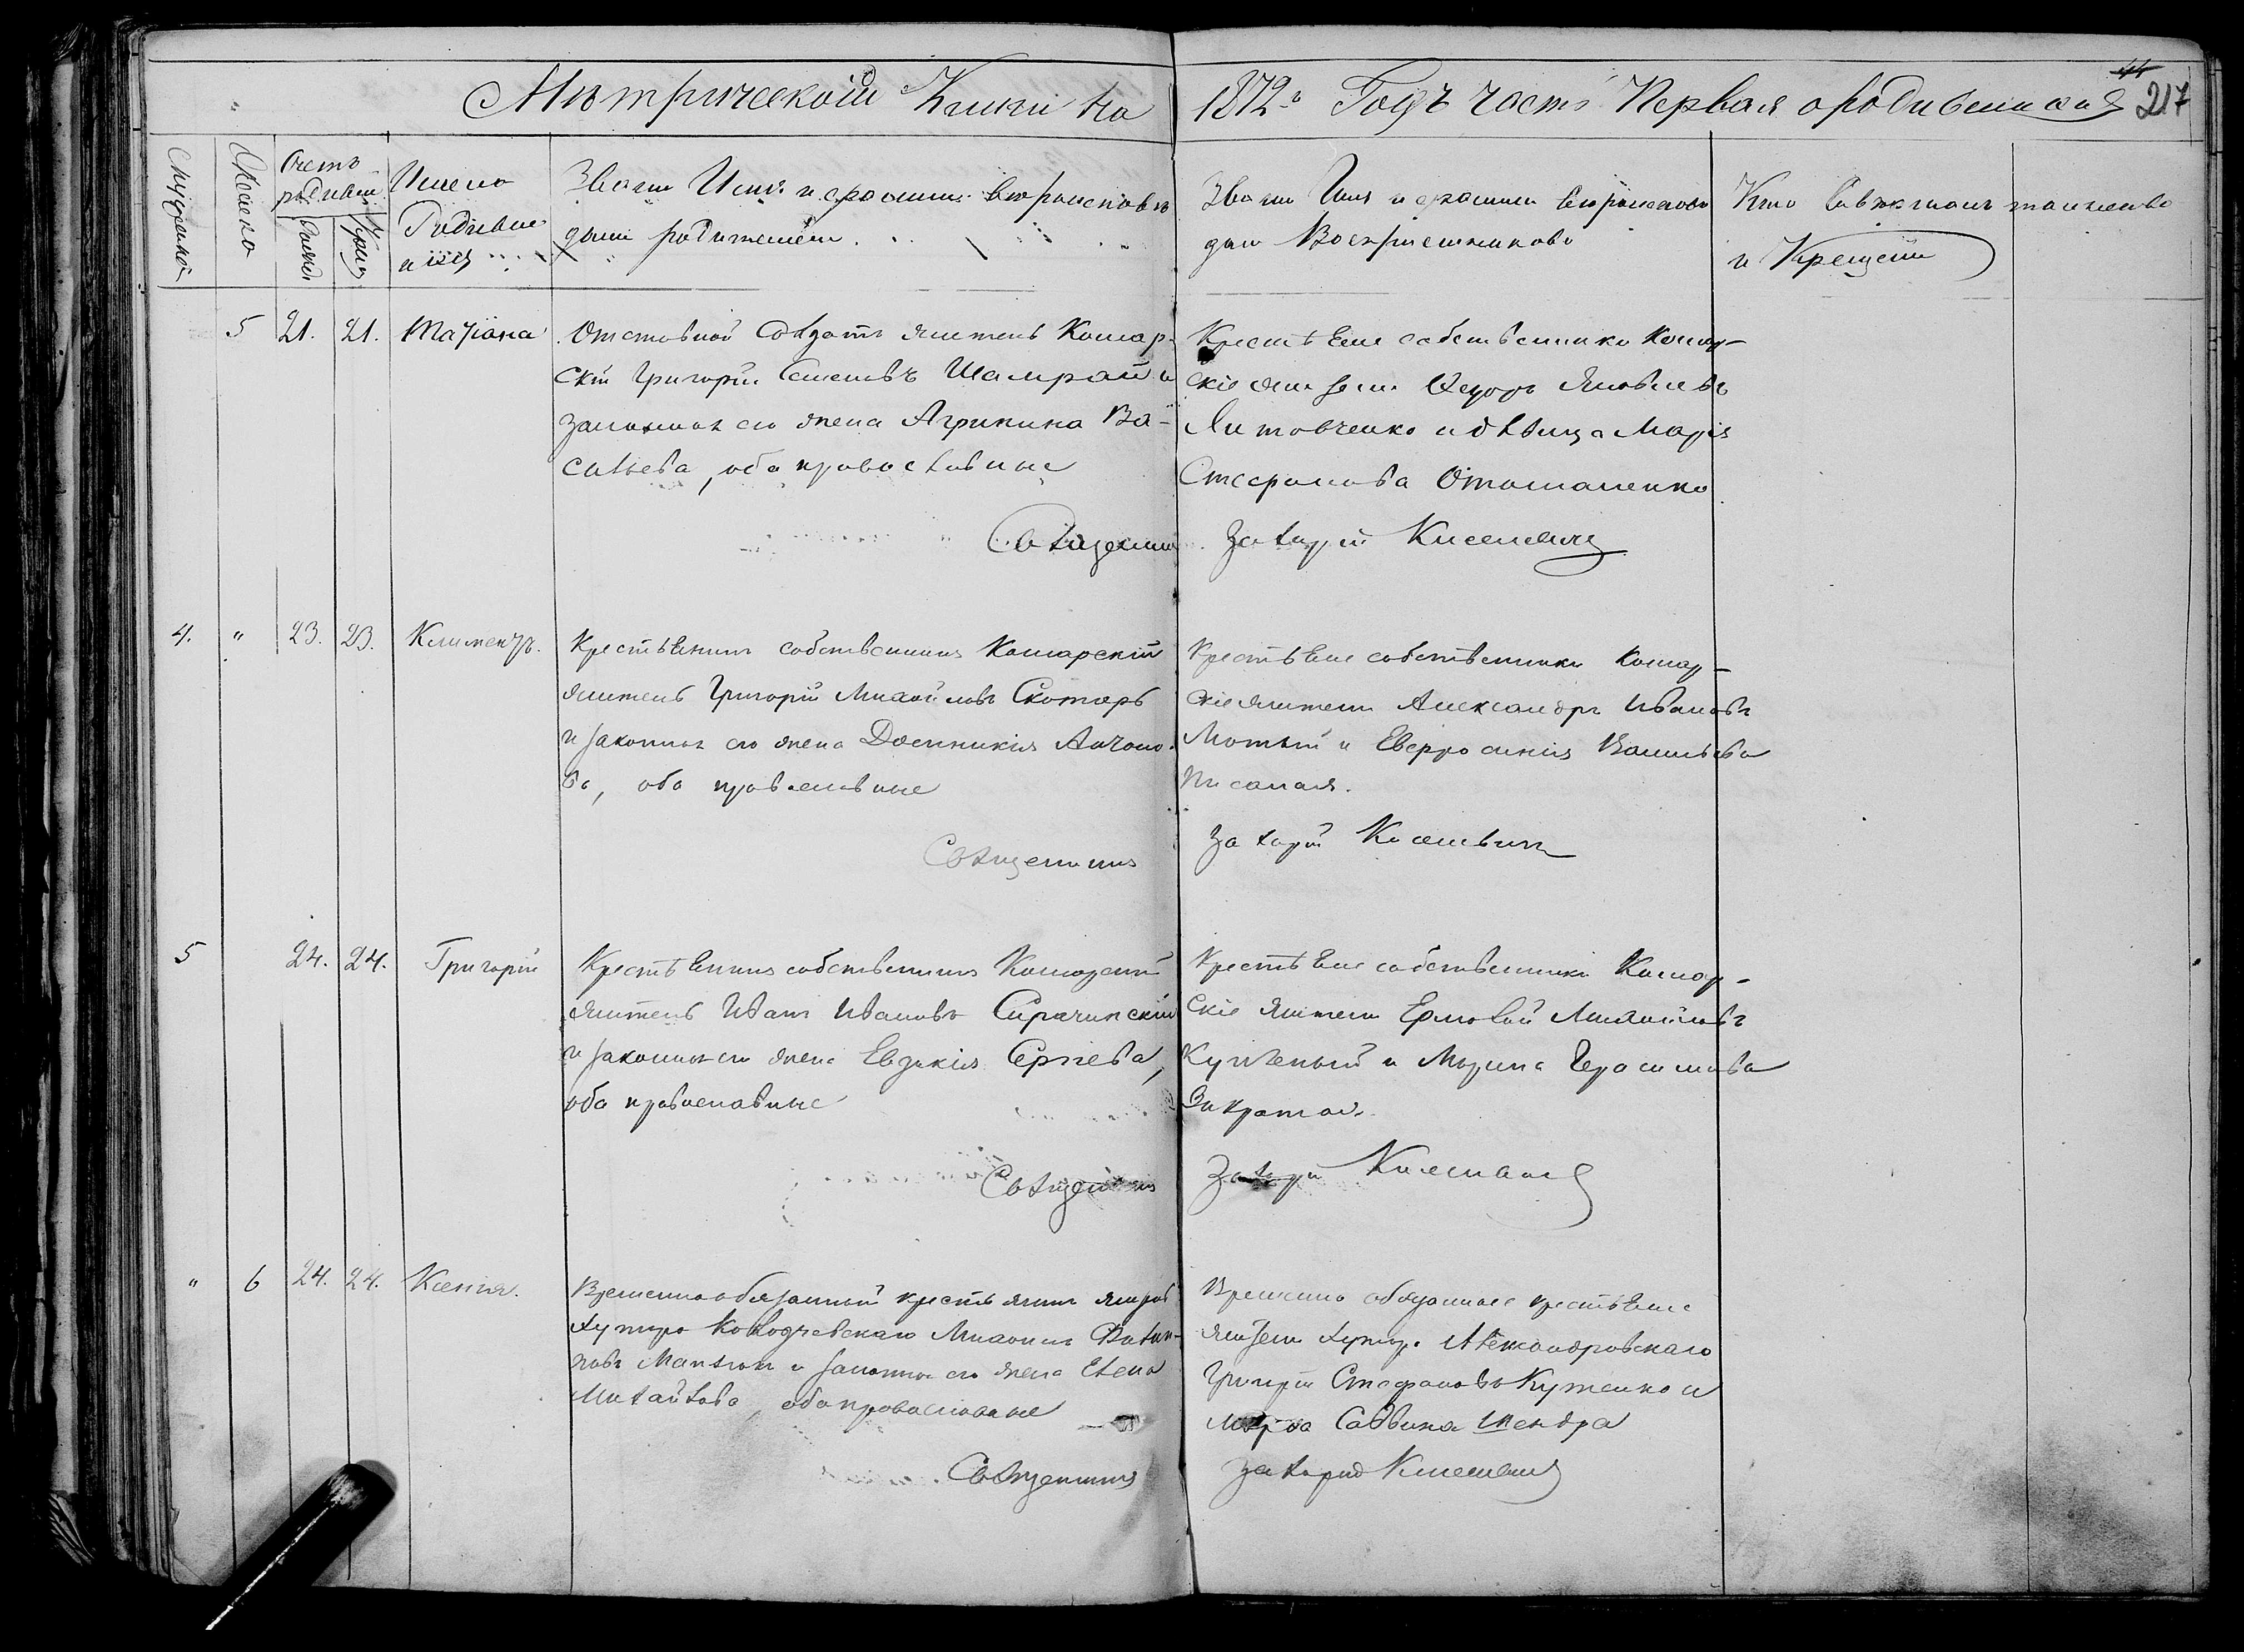 Метрической Книги на 1872-й Годъ часть Первая о родившихся
44
217
Мужеска
Женска
Счетъ родивш.
Рожд.
Крещ.
Имена
Родивших
ихся
Званіе Имя и фамилія вероисповѣ
данія родителей
Званіе Имя и фамилія вероисповѣ
данія Воспріемниковъ
Кто совѣршалъ таинство
и Крещенія
5 21. 21. Татіана
Отставной Солдатъ житель Кошар-
скій Григорій Семеновъ Шамрай и
законная его жена Агрипина Ва-
сильева, оба православные
Священникъ
Крестьяне собственники Кошар-
скіе жители Ѳедоръ Яковлевъ
Литовченко и дѣвица Марія
Стефанова Отаманенко
Захарій Киселевичъ
4. " 23. 23. Климентъ.
Крестьянинъ собственникъ Кошарскій
житель Григорій Михайловъ Скотарь
и законная его жена Доминикія Антоно-
ва, оба православные
Священникъ
Крестьяне собственники Кошар-
скіе жители Александръ Ивановъ
и Евфросинія Васильева
Захарій Киселевичъ
5 24. 24. Григорій
Крестьянинъ собственникъ Кошарскій
житель Иванъ Ивановъ Сирачинскій
и законная его жена Евдокія Сергіева,
оба православные
Священникъ
Крестьяне собственники Кошар-
скіе жители Ермолай Михайловъ
и Марина Герасимова
Захарій Киселевичъ
" 6 24. 24. Ксенія.
Временнообязанный крестьянинъ
хутора Михаилъ Филип-
повъ и законная его жена Елена
Михайлова, оба православные
Священникъ
Временно обязанные крестьяне
жители хутора Александровскаго
Григорій Стефановъ Куженко и
Савина Шендра
Захарій Киселевичъ